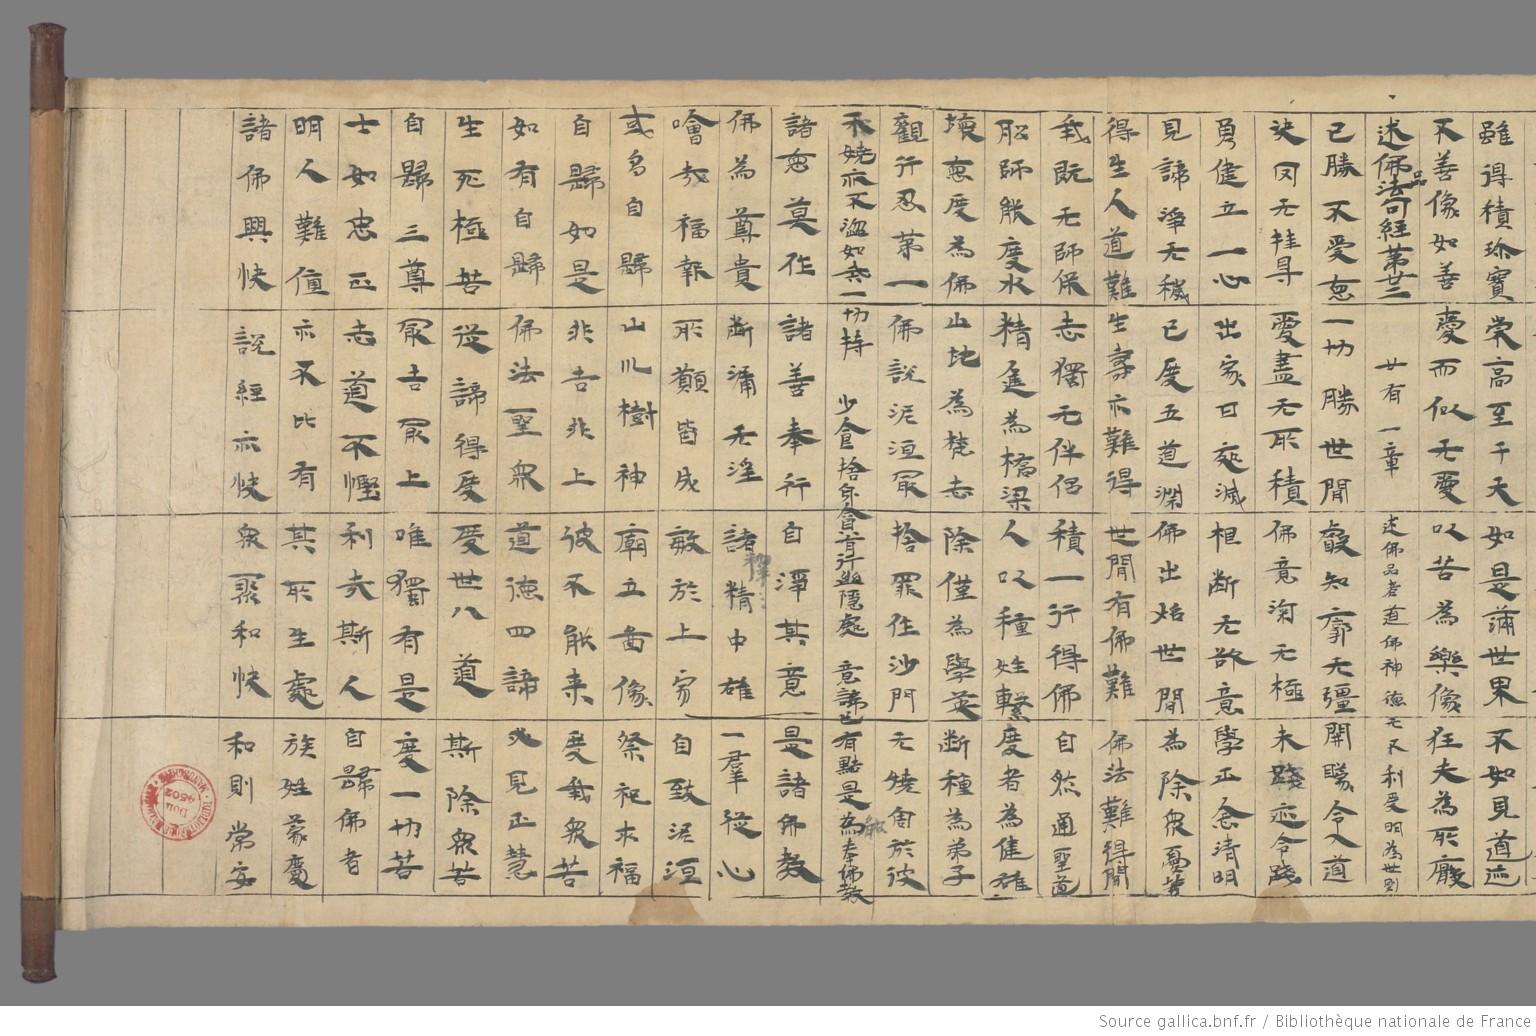 雖得積珍寶 崇高至于天 如是滿世界 不如見道迹
不善像如善 愛而似无愛 以苦為樂像 狂夫為所厭
述佛品法句經第廿二 廿有一章 述佛品者道佛神德无不利受明為世則
已勝不受惡 一切勝世間 叡知廓无彊 開矇令入道
決罔无罣㝵 愛盡无所積 佛意渕无極 未踐迹令踐
勇健立一心 出家日夜滅 根斷无欲意 學正念清明
見諦淨无穢 已度五道淵 佛出炤世間 為除衆憂苦
得生人道難 生壽亦難得 世間有佛難 佛法難得聞
我既无師保 志獨无伴侶 積一行得佛 自然通聖道
船師能度水 精進為橋梁 人以種姓繫 度者為健雄
壞惡度為佛 止地為梵志 除僅為學法 斷種為弟子
觀行忍第一 佛說泥洹最 捨罪作沙門 无嬈害於彼
不嬈亦不惱如戒一切持 少食捨身貪有行幽隱處 意諦已有黠是為奉佛教
諸惡莫作 諸善奉行 自淨其意 是諸佛教
佛為尊貴 斷漏无淫 諸釋精中雄 一羣從心
噲哉福報 所願皆成 敏於上寂 自致泥洹
或多自歸 山川樹神 廟立啚像 祭祀求福
自歸如是 非吉非上 彼不能來 度我衆苦
如有自歸 佛法聖衆 道德四諦 必見正慧
生死極苦 從諦得度 度世八道 斯除衆苦
自歸三尊 最吉最上 唯獨有是 度一切苦
士如忠正 志道不慳 利哉斯人 自歸佛者
明人難值 亦不比有 其所生處 族姓蒙慶
諸佛興快 說經亦快 衆聚和快 和則常安
Source gallica.bnf.fr / Bibliothèque nationale de France